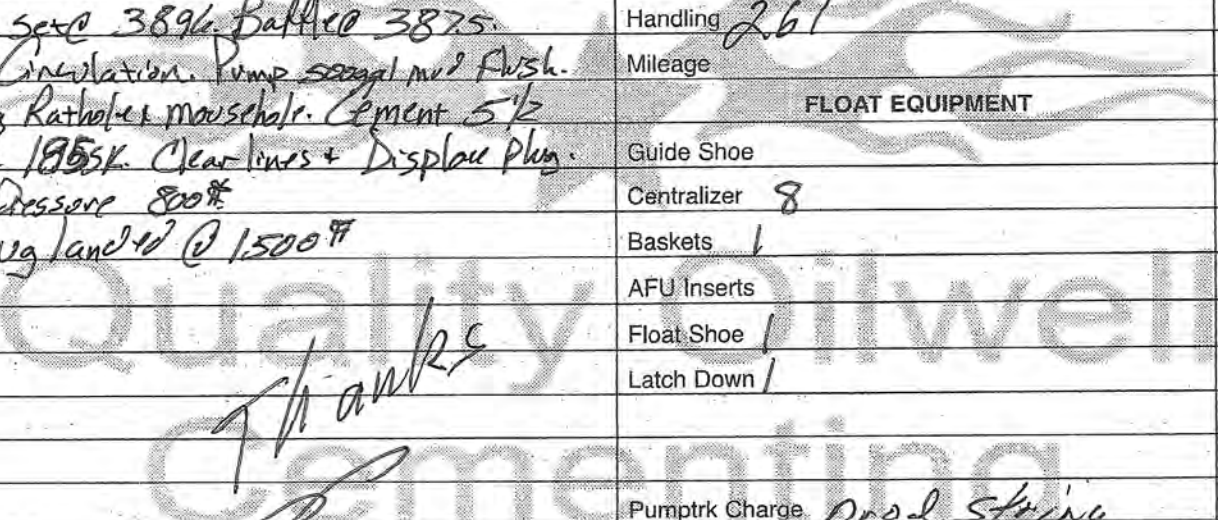 set@ 3894. Baffle@ 3875.
Circulation. Pump 500gal mud Flush.
Rathole & mousehole. Cement 5 1/2
185SK. Clear lines & Displace Plug.
Pressure 800#
ug landed @ 1500#
Thanks
Handling 261
Mileage
FLOAT EQUIPMENT
Guide Shoe
Centralizer 8
Baskets 1
AFU Inserts
Float Shoe 1
Latch Down 1
Pumptrk Charge prod string
Quality Oilwell
Cementing